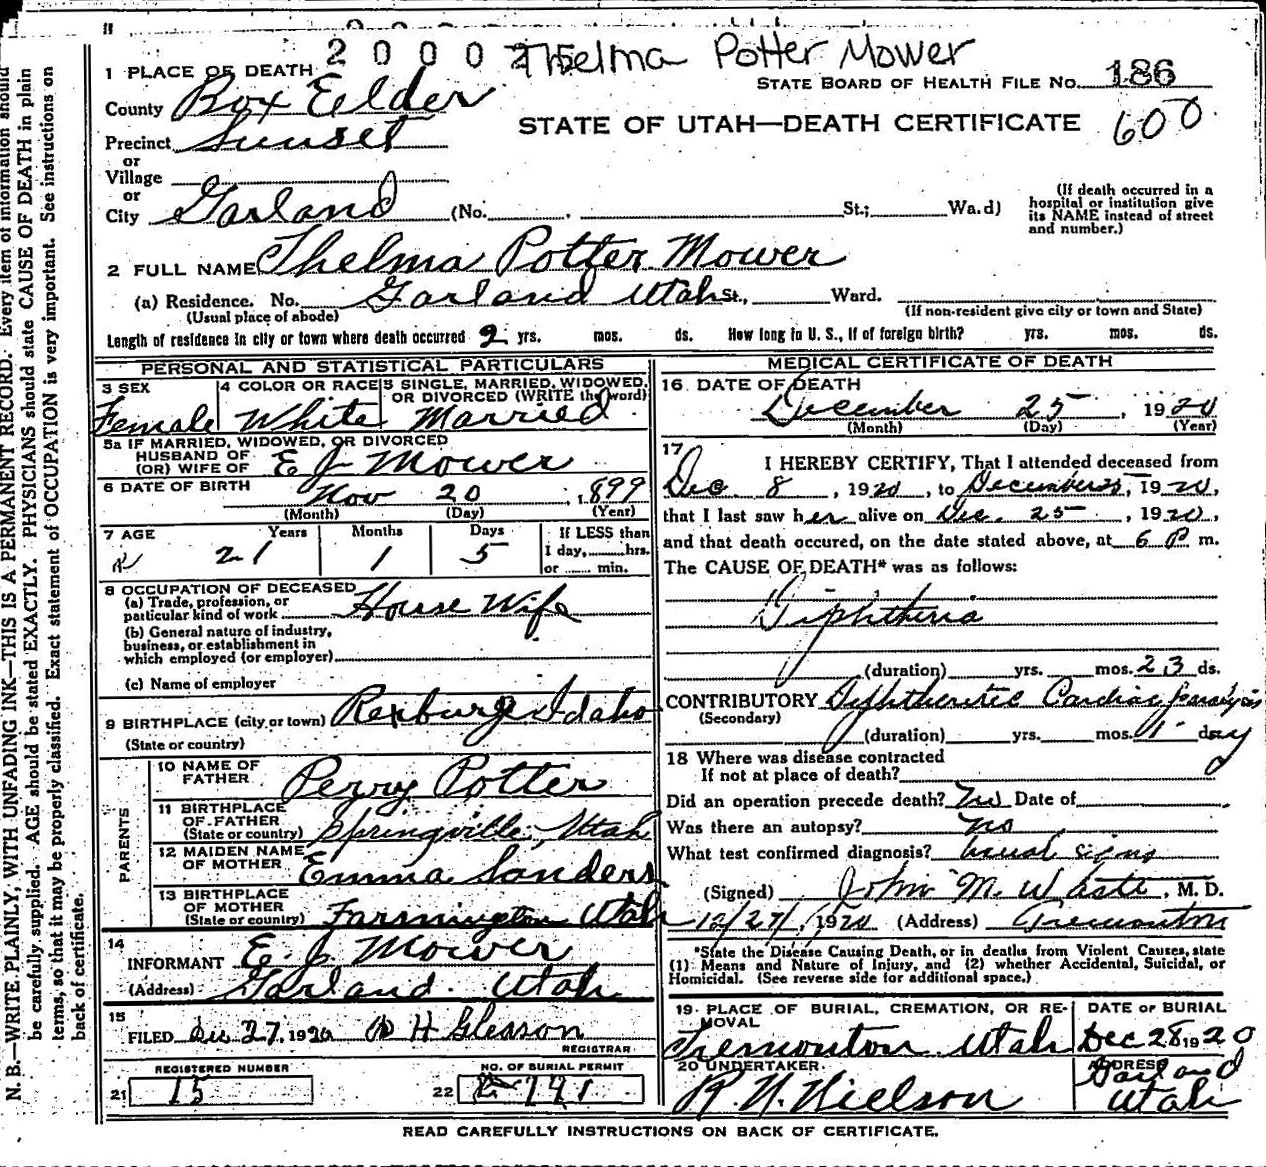 2 0 0 0 2 5 Thelma Potter Mower
1 PLACE OF DEATH
STATE BOARD OF HEALTH FILE NO. 186
County Box Eelder
STATE OF UTAH—DEATH CERTIFICATE 600
Precinct Sunset
or
Village
or
City Garland (No. St.; Wa.d)
(If death occurred in a
hospital or institution give
its NAME instead of street
and number.)
2 FULL NAME Thelma Potter Mower
(a) Residence. No. Garland Utah St., Ward.
(Usual place of abode)
(If non-resident give city or town and State)
Length of residence in city or town where death occurred 2 yrs. mos. ds. How long in U. S., if of foreign birth? yrs. mos. ds.
PERSONAL AND STATISTICAL PARTICULARS
3 SEX 4 COLOR OR RACE 5 SINGLE, MARRIED, WIDOWED,
OR DIVORCED (WRITE the word)
Female White Married
5a IF MARRIED, WIDOWED, OR DIVORCED
HUSBAND OF
(OR) WIFE OF E J Mower
6 DATE OF BIRTH Nov 20, 1899
(Month) (Day) (Year)
7 AGE Years Months Days If LESS than
21 1 5 1 day,......hrs.
or ...... min.
8 OCCUPATION OF DECEASED
(a) Trade, profession, or
particular kind of work House Wife
(b) General nature of industry,
business, or establishment in
which employed (or employer)
(c) Name of employer
9 BIRTHPLACE (city or town) Rexburg Idaho
(State or country)
PARENTS
10 NAME OF
FATHER Perry Potter
11 BIRTHPLACE
OF FATHER
(State or country) Springville, Utah
12 MAIDEN NAME
OF MOTHER Emma Sanders
13 BIRTHPLACE
OF MOTHER
(State or country) Farmington Utah
14
INFORMANT E. J. Mower
(Address) Garland. Utah
15
FILED Dec 27, 1920 H Gleason
REGISTRAR
REGISTERED NUMBER NO. OF BURIAL PERMIT
21 15 22 791
MEDICAL CERTIFICATE OF DEATH
16 DATE OF DEATH
December 25, 1920
(Month) (Day) (Year)
17
I HEREBY CERTIFY, That I attended deceased from
Dec. 8, 1920, to December 25, 1920,
that I last saw her alive on Dec. 25, 1920,
and that death occured, on the date stated above, at 6 P m.
The CAUSE OF DEATH* was as follows:
Diphtheria
(duration) yrs. mos. 23 ds.
CONTRIBUTORY Diphtheritic Cardiac paralysis
(Secondary)
(duration) yrs. mos. 1 day
18 Where was disease contracted
If not at place of death?
Did an operation precede death? No Date of
Was there an autopsy? no
What test confirmed diagnosis? Usual signs
(Signed) John M. Waste, M. D.
12/27/, 1920 (Address) Tremonton
*State the Disease Causing Death, or in deaths from Violent Causes, state
(1) Means and Nature of Injury, and (2) whether Accidental, Suicidal, or
Homicidal. (See reverse side for additional space.)
19 PLACE OF BURIAL, CREMATION, OR RE-
MOVAL
DATE OF BURIAL
Tremonton Utah Dec 28 1920
20 UNDERTAKER ADDRESS
R. N. Nielson Garland
Utah
READ CAREFULLY INSTRUCTIONS ON BACK OF CERTIFICATE.
N. B.—WRITE PLAINLY, WITH UNFADING INK—THIS IS A PERMANENT RECORD. Every item of information should
be carefully supplied. AGE should be stated EXACTLY. PHYSICIANS should state CAUSE OF DEATH in plain
terms, so that it may be properly classified. Exact statement of OCCUPATION is very important. See instructions on
back of certificate.